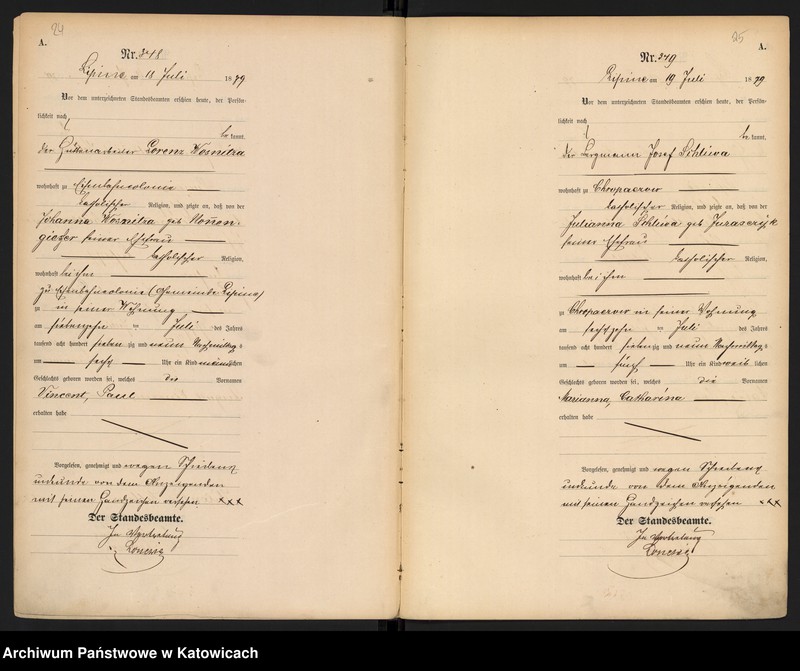 24
A.
Nr. 348
Lipine am 18 Juli 1879
Vor dem unterzeichneten Standesbeamten erschien heute, der Persön-
lichkeit nach
be kannt,
der Hüttenarbeiter Lorenz Wosnitza
wohnhaft zu Eisenbahncolonie
katholischer Religion, und zeigte an, daß von der
Johanna Wosnitza geb
seiner Ehefrau
katholischer Religion,
wohnhaft bei ihm
zu Eisenbahncolonie (Gemeinde Lipine)
zu in seiner Wohnung
am siebenzehn ten Juli des Jahres
tausend acht hundert sieben zig und neun Nachmittags
um sechs Uhr ein Kind männlichen
Geschlechts geboren worden sei, welches die Vornamen
Vincent, Paul
erhalten habe
Vorgelesen, genehmigt und wegen Schreibens
unkunde von dem Anzeigenden
mit seinem Handzeichen versehen xxx
Der Standesbeamte.
In Vertretung
25
A.
Nr. 349
Lipine am 19 Juli 1879
Vor dem unterzeichneten Standesbeamten erschien heute, der Persön-
lichkeit nach
be kannt,
der Bergmann Josef Schliwa
wohnhaft zu Chropaczow
katholischer Religion, und zeigte an, daß von der
Julianna Schliwa geb
seiner Ehefrau
katholischer Religion,
wohnhaft bei ihm
zu Chropaczow in seiner Wohnung
am sechszehn ten Juli des Jahres
tausend acht hundert sieben zig und neun Nachmittags
um fünf Uhr ein Kind weib lichen
Geschlechts geboren worden sei, welches die Vornamen
Marianna, Catharina
erhalten habe
Vorgelesen, genehmigt und wegen Schreibens
unkunde von dem Anzeigenden
mit seinem Handzeichen versehen xxx
Der Standesbeamte.
In Vertretung
Archiwum Państwowe w Katowicach